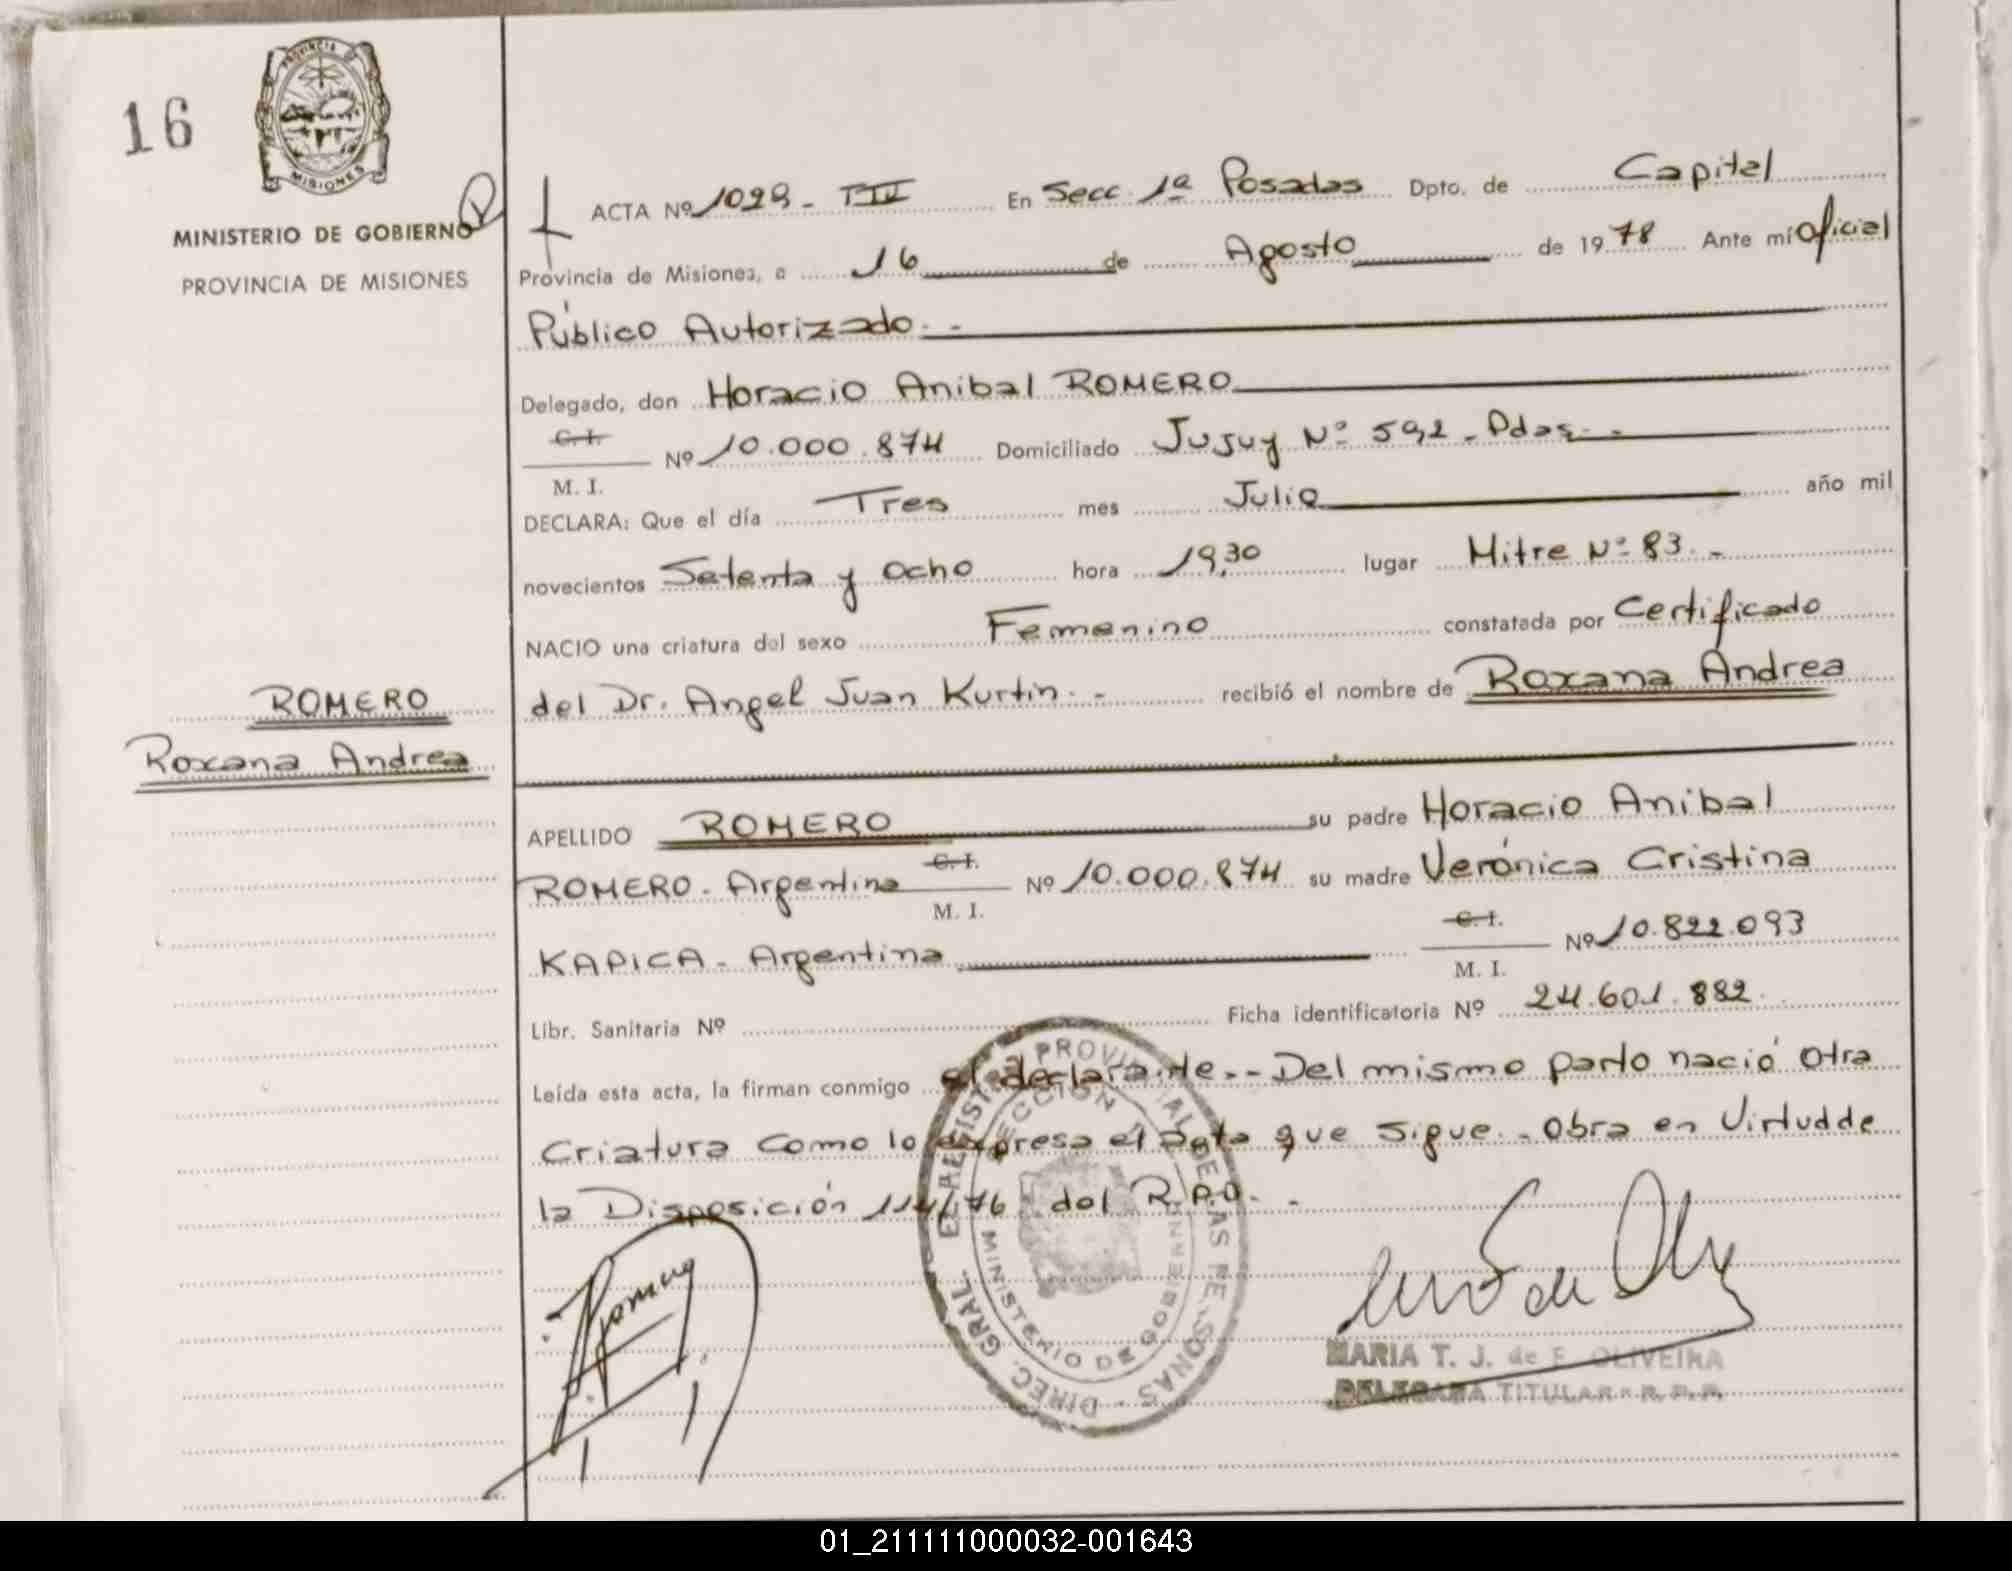 16
PROVINCIA
MISIONES
MINISTERIO DE GOBIERNO
PROVINCIA DE MISIONES
ACTA Nº 1029 - TIV En Secc. 1ª Posadas Dpto. de Capital
Provincia de Misiones, a 16 de Agosto de 1978 Ante mí Oficial
Público Autorizado.-
Delegado, don Horacio Anibal ROMERO
C. I.
M. I.
Nº 10.000.874 Domiciliado Jujuy Nº 592 - Pdas.-
DECLARA: Que el día Tres mes Julio año mil
novecientos Setenta y Ocho hora 19,30 lugar Mitre Nº 83.-
NACIO una criatura del sexo Femenino constatada por Certificado
del Dr. Angel Juan Kurtin.- recibió el nombre de Roxana Andrea
ROMERO
Roxana Andrea
APELLIDO ROMERO su padre Horacio Anibal
ROMERO - Argentino C. I. M. I. Nº 10.000.874 su madre Verónica Cristina
KAPICA - Argentina C. I. M. I. Nº 10.822.093
Libr. Sanitaria Nº Ficha identificatoria Nº 24.601.882.
Leída esta acta, la firman conmigo el declarante.-- Del mismo parto nació otra
Criatura como lo expresa el acta que sigue.- Obra en Virtud de
la Disposición 114/76 del R.P.P.-
Romero
DIREC. GRAL. REGISTRO PROVINCIAL DE LAS PERSONAS
MINISTERIO DE GOBIERNO
MARIA T. J. de F. OLIVEIRA
DELEGADA TITULAR - R. P. P.
01_211111000032-001643